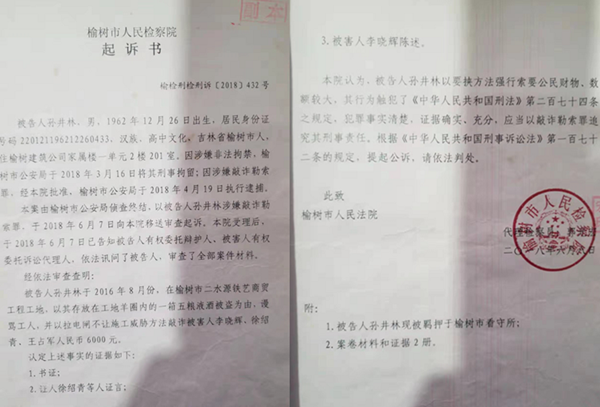 副本
榆树市人民检察院
起诉书
榆检刑检刑诉〔2018〕432号
被告人孙井林，男，1962年12月26日出生，居民身份证
号码220121196212260433，汉族，高中文化，吉林省榆树市人，
住榆树建筑公司家属楼一单元2楼201室。因涉嫌非法拘禁，榆
树市公安局于2018年3月16日将其刑事拘留；因涉嫌敲诈勒索
罪，经本院批准，榆树市公安局于2018年4月19日执行逮捕。
本案由榆树市公安局侦查终结，以被告人孙井林涉嫌敲诈勒
索罪，于2018年6月7日向本院移送审查起诉。本院受理后，
于2018年6月7日已告知被告人有权委托辩护人，被害人有权
委托诉讼代理人，依法讯问了被告人，审查了全部案件材料。
经依法审查查明：
被告人孙井林于2016年8月份，在榆树市二水源铁艺商贸
工程工地，以其存放在工地羊圈内的一箱五粮液酒被盗为由，谩
骂工人，并以拉电闸不让施工威胁方法敲诈被害人李晓辉、徐绍
青、王占军人民币6000元。
认定上述事实的证据如下：
1.书证；
2.证人徐绍青等人证言；
3.被害人李晓辉陈述。
本院认为，被告人孙井林以要挟方法强行索要公民财物，数
额较大，其行为触犯了《中华人民共和国刑法》第二百七十四条
之规定，犯罪事实清楚，证据确实、充分，应当以敲诈勒索罪追
究其刑事责任。根据《中华人民共和国刑事诉讼法》第一百七十
二条的规定，提起公诉，请依法判处。
此致
榆树市人民法院
榆树市人民检察院
代理检察员
二〇一八年六月八日
附：
1.被告人孙井林现被羁押于榆树市看守所；
2.案卷材料和证据2册。